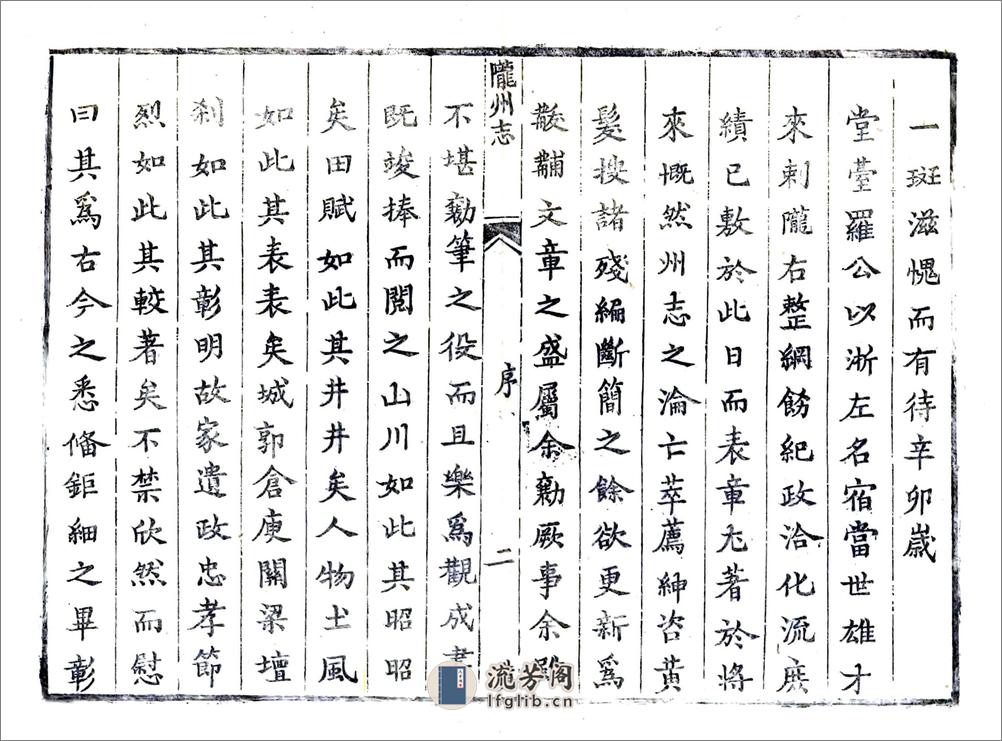 一斑滋愧而有待辛卯歳
堂臺羅公以淅左名宿當世雄才
來刺隴右整綱飭紀政洽化流庶
績已敷於此日而表章尢著於將
來慨然州志之淪亡萃薦紳咨黄
髮搜諸殘編斷簡之餘欲更新爲
黻黼文章之盛屬余勷厥事余雖
隴州志
序
二
不堪勷筆之役而且樂爲觀成書
既竣捧而閲之山川如此其昭昭
矣田賦如此其井井矣人物土風
如此其表表矣城郭倉庾關梁壇
刹如此其彰明故家遺政忠孝節
烈如此其較著矣不禁欣然而慰
曰其爲右今之悉俻鉅細之畢彰
流芳阁
lfglib.cn